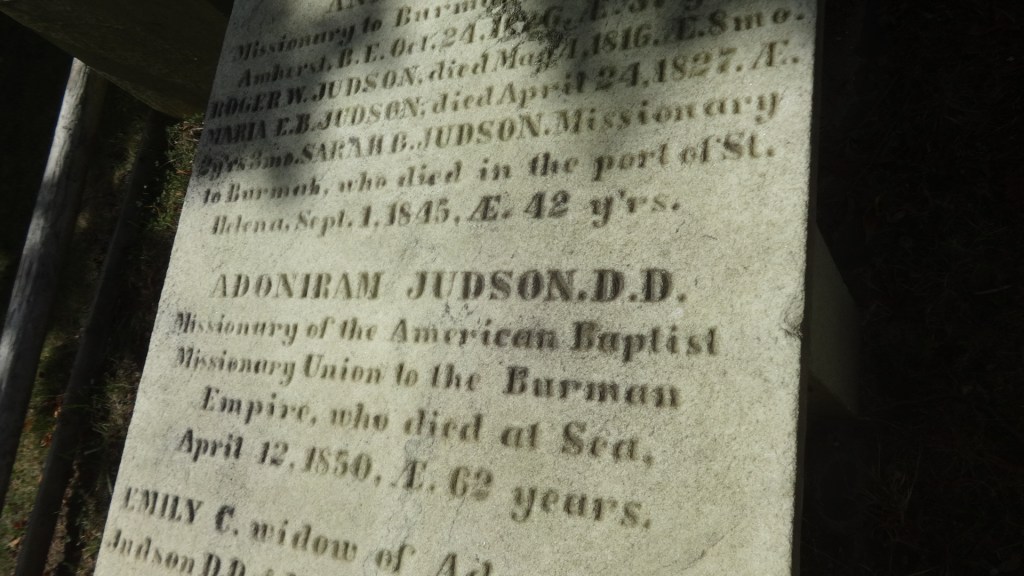 Missionary to Burmah
Amherst, B.E. Oct. 24, 1826, Æ. 37
ROGER W. JUDSON, died May 4, 1816, Æ. 8 mo.
MARIA E.B. JUDSON, died April 24, 1827, Æ.
2 yrs 3 mo. SARAH B. JUDSON, Missionary
to Burmah, who died in the port of St.
Helena, Sept. 1, 1845, Æ. 42 y'rs.
ADONIRAM JUDSON, D.D.
Missionary of the American Baptist
Missionary Union to the Burman
Empire, who died at Sea,
April 12, 1850, Æ. 62 years.
EMILY C. widow of
Judson D.D.